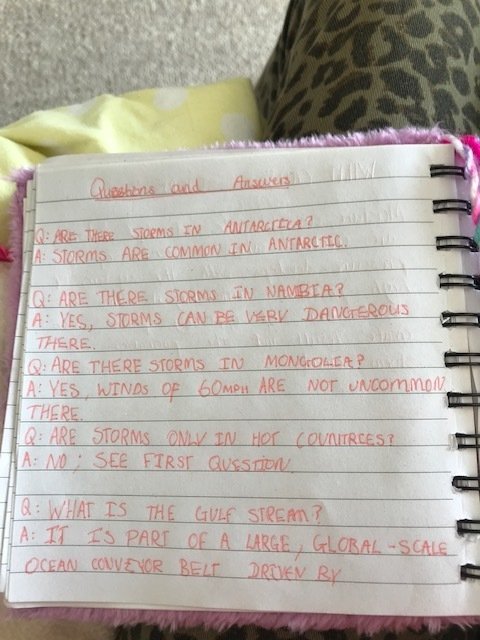 Questions and Answers
Q: ARE THERE STORMS IN ANTARCTICA?
A: STORMS ARE COMMON IN ANTARCTIC.
Q: ARE THERE STORMS IN NAMBIA?
A: YES, STORMS CAN BE VERY DANGEROUS
THERE.
Q: ARE THERE STORMS IN MONGOLIA?
A: YES, WINDS OF 60MPH ARE NOT UNCOMMON
THERE.
Q: ARE STORMS ONLY IN HOT COUNTRIES?
A: NO; SEE FIRST QUESTION
Q: WHAT IS THE GULF STREAM?
A: IT IS PART OF A LARGE, GLOBAL-SCALE
OCEAN CONVEYOR BELT DRIVEN BY